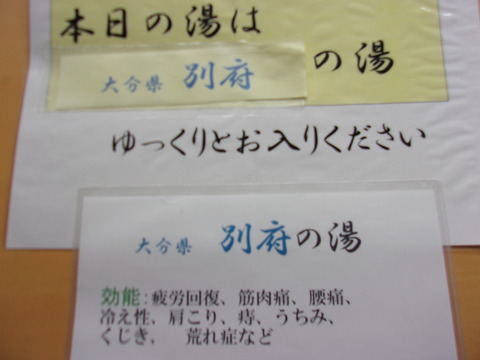 本日の湯は
大分県 別府 の湯
ゆっくりとお入りください
大分県 別府の湯
効能:疲労回復、筋肉痛、腰痛、
冷え性、肩こり、痔、うちみ、
くじき、 荒れ症など